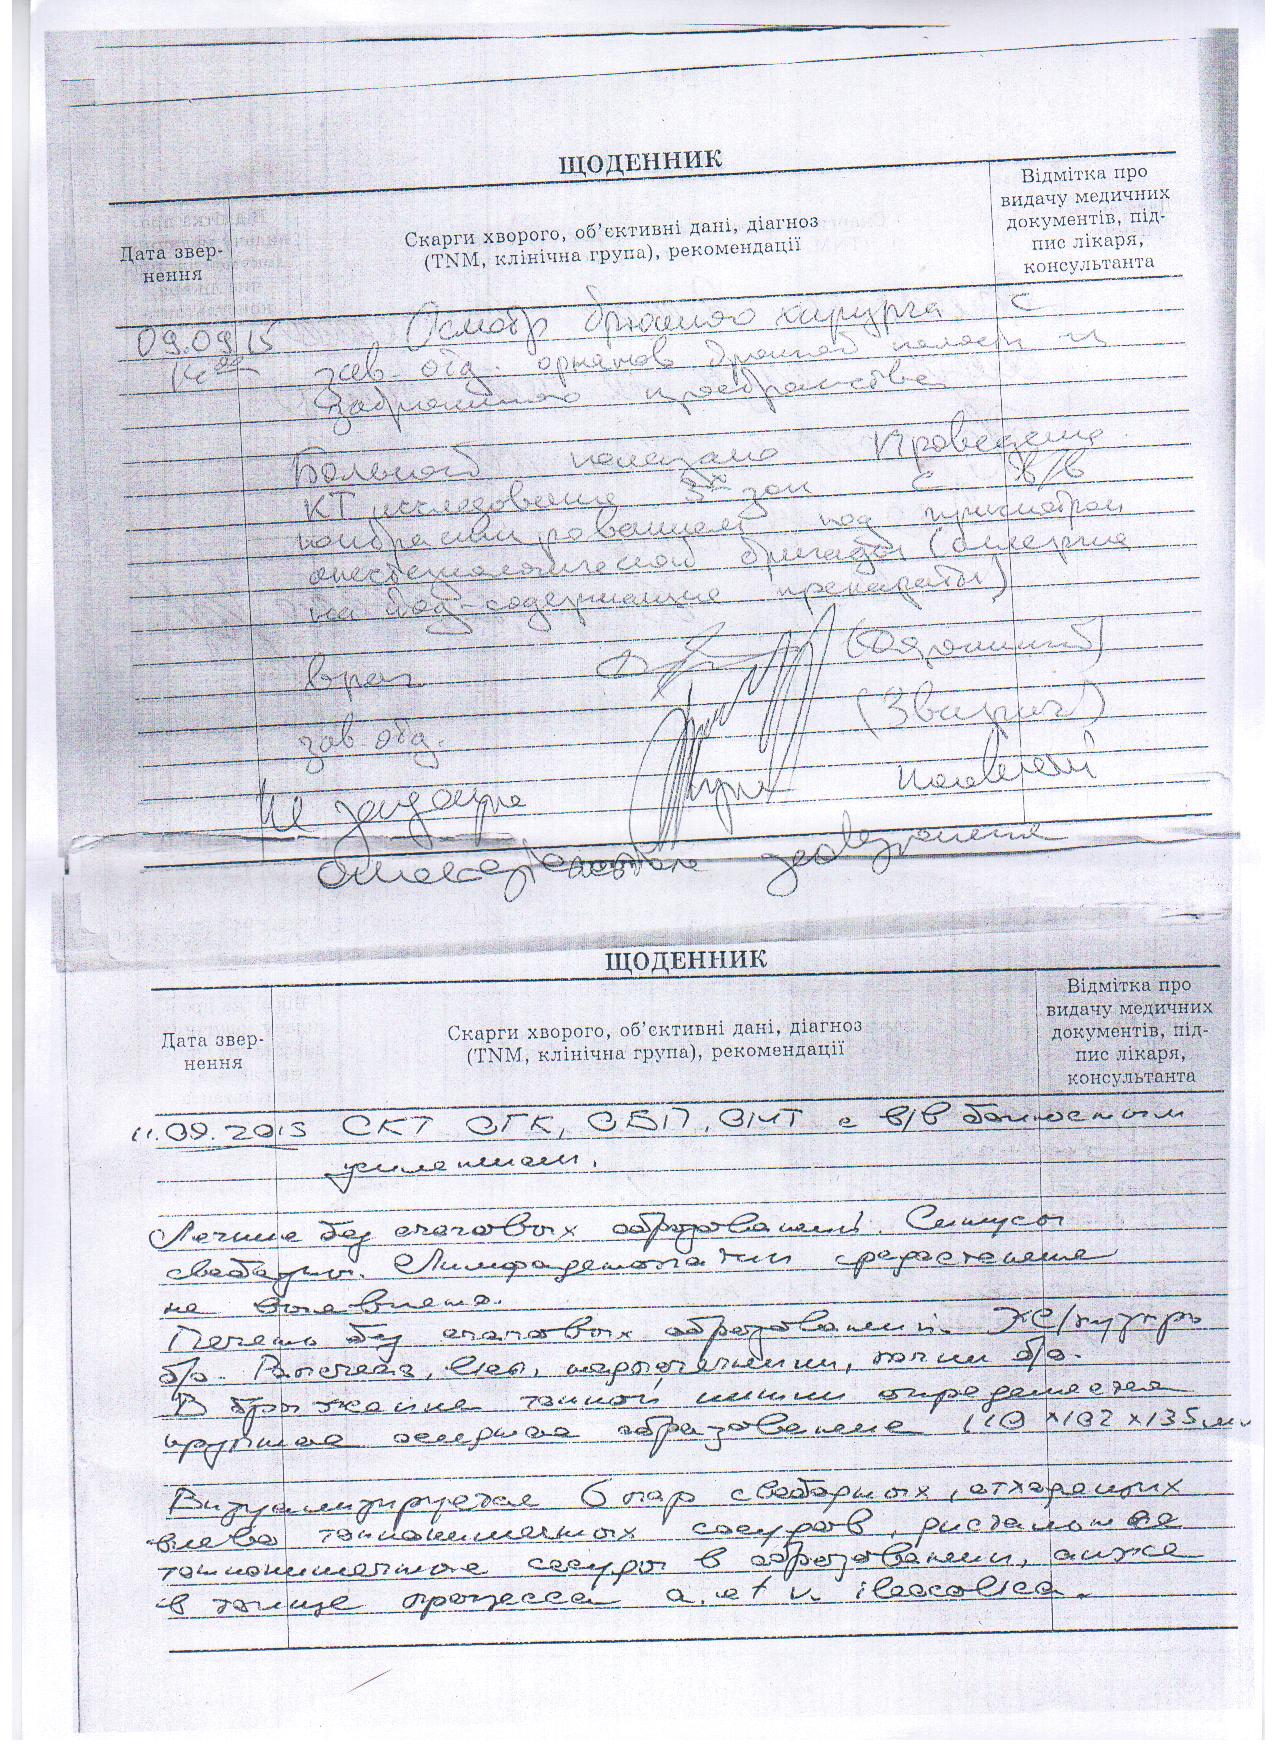 ЩОДЕННИК
Дата звер-
нення
Скарги хворого, об'єктивні дані, діагноз
(TNM, клінічна група), рекомендації
Відмітка про
видачу медичних
документів, під-
пис лікаря,
консультанта
09.09.15 Осмотр брюшного хирурга с
14 00 зав. отд. органов брюшной полости и
забрюшинного пространства
Больной показано проведение
КТ исследования 3х зон с в/в
контрастированием под присмотром
анестезиологической бригады (аллергия
на йод-содержащие препараты)
врач
зав. отд.
ЩОДЕННИК
Дата звер-
нення
Скарги хворого, об'єктивні дані, діагноз
(TNM, клінічна група), рекомендації
Відмітка про
видачу медичних
документів, під-
пис лікаря,
консультанта
11.09.2015 СКТ ОГК, ОБП, ОМТ с в/в болюсным
усилением.
Легкие без очаговых образований. Синусы
свободны. Лимфаденопатии средостения
не выявлено.
Печень без очаговых образований. ЖС/пузырь
б/о. надпочечники, почки б/о.
В брыжейке тонкой кишки определяется
крупное образование 110 х 102 х 135 мм.
Визуализируется 6 пар свободных, отходящих
влево тонкокишечных сосудов, дистальнее
тонкокишечные сосуды в образовании, также
в толще процесса a. et v. ileocolica.